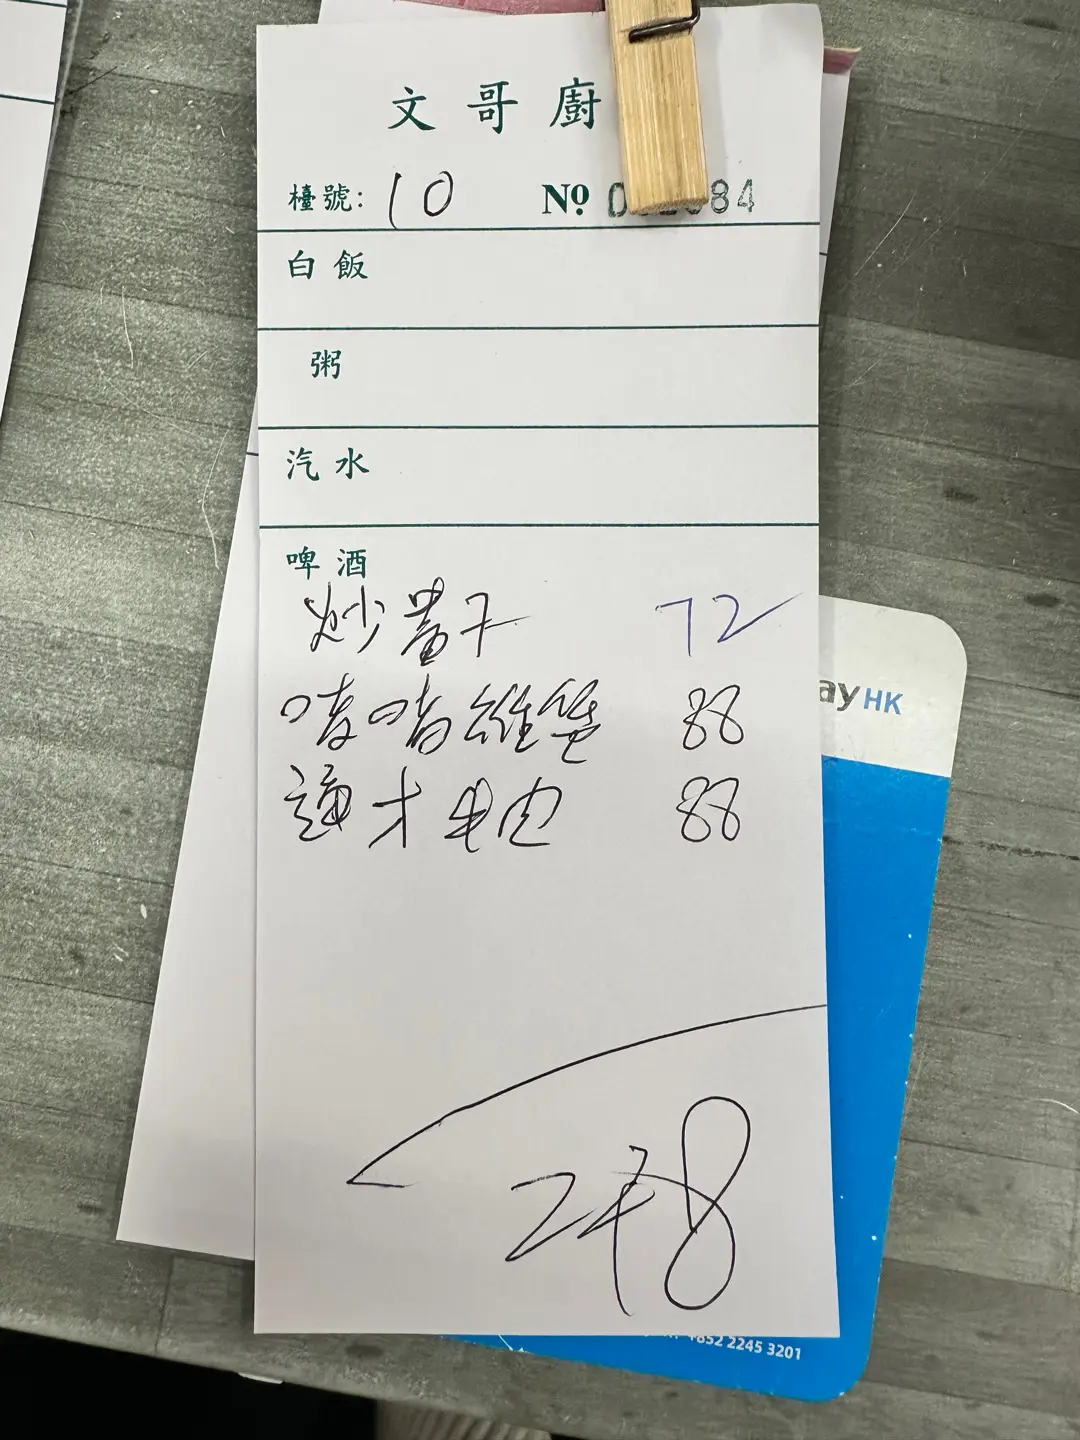 文哥廚
檯號: 10 Nº 84
白飯
粥
汽水
啤酒
炒蜆 72
啫啫雞煲 88
88
248
ayHK
852 2245 3201